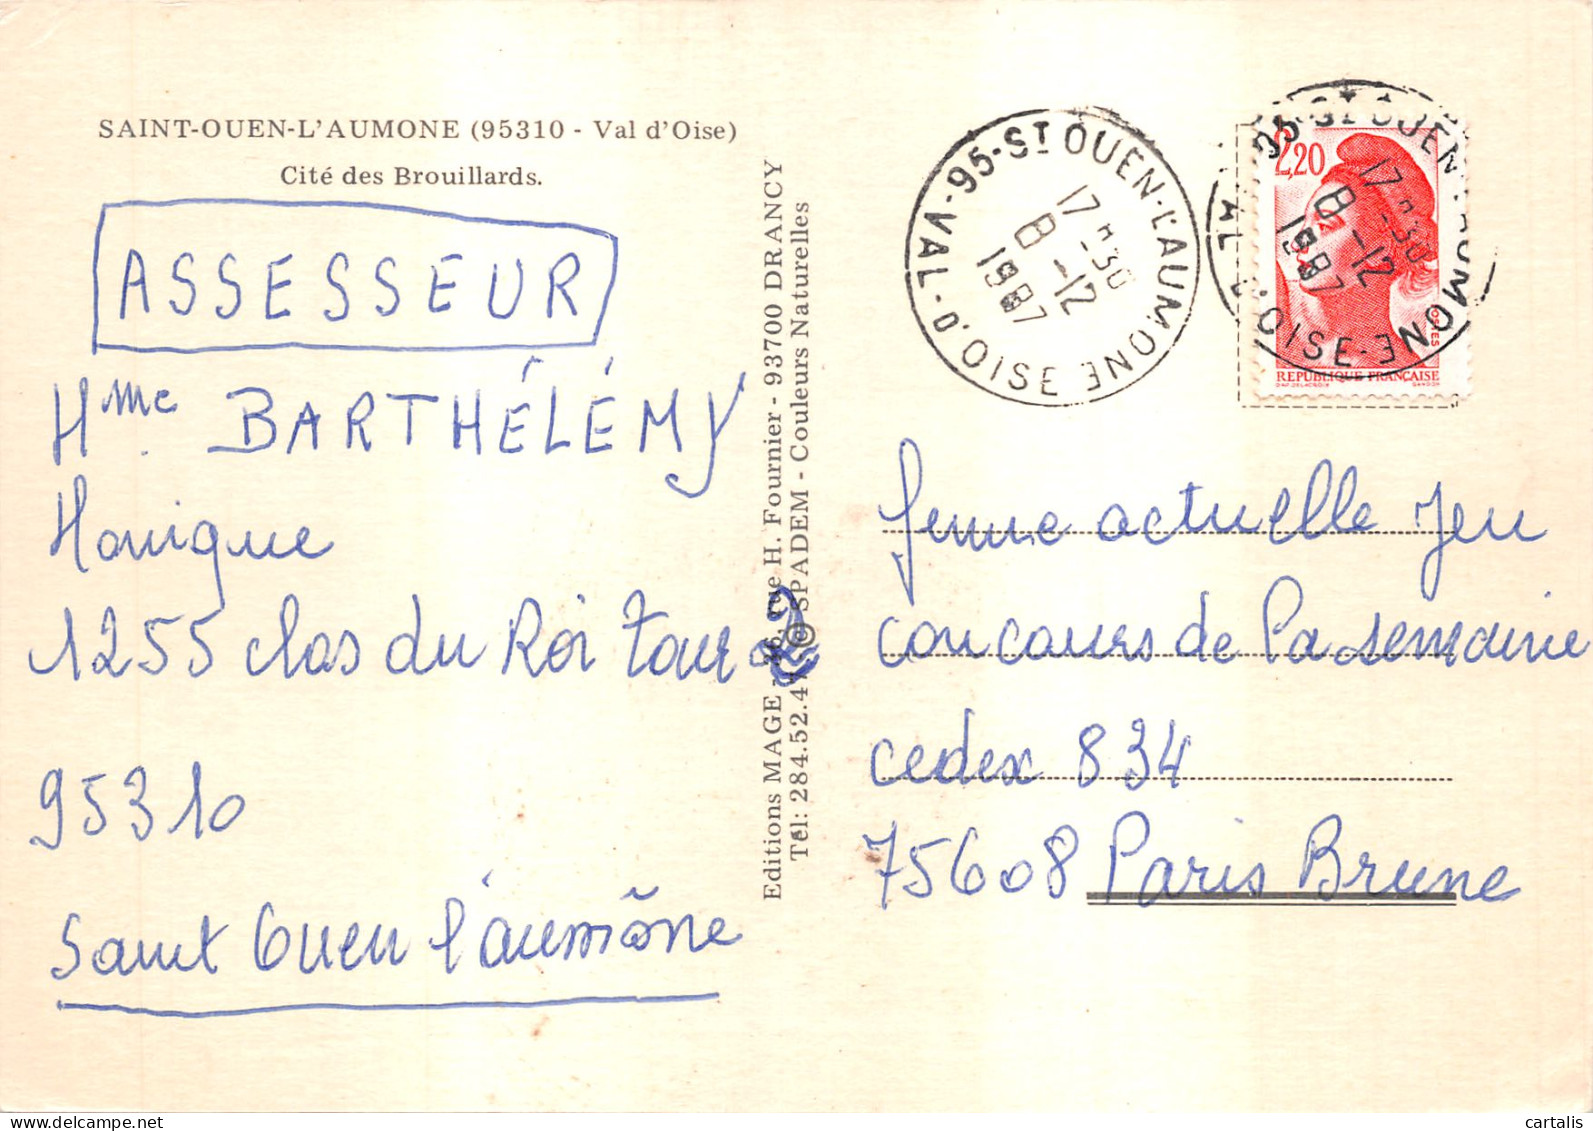 SAINT-OUEN-L'AUMONE (95310 - Val d'Oise)
Cité des Brouillards.
ASSESSEUR
Mme BARTHÉLÉMY
Monique
1255 clos du Roi Tour 2
95310
Saint Ouen l'aumône
Editions MAGE rue H. Fournier - 93700 DRANCY
Tél: 284.52.4 © SPADEM - Couleurs Naturelles
95-ST OUEN-L'AUMONE VAL-D'OISE
17H-30
8-12
1987
95-ST OUEN-L'AUMONE VAL D'OISE
17H-30
8-12
1987
2,20
POSTES
REPUBLIQUE FRANÇAISE
D'AP. DELACROIX GANDON
femme actuelle Jeu
concours de la semaine
cedex 834
75608 Paris Brune
delcampe.net
cartalis